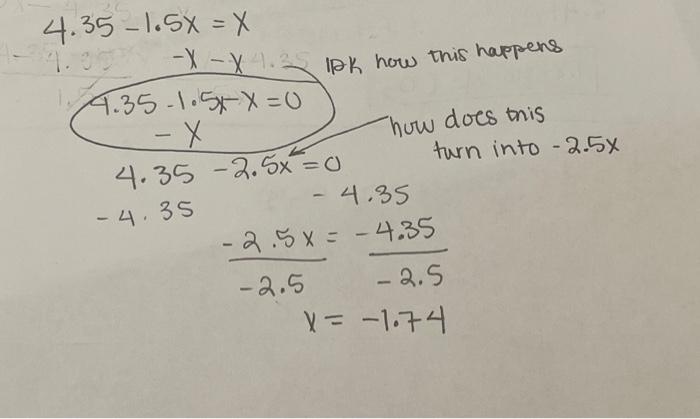 4.35 - 1.5x = x
-x -x
IDK how this happens
4.35 - 1.5x - x = 0
- x
how does this
turn into -2.5x
4.35 - 2.5x = 0
- 4.35 - 4.35
-2.5x = -4.35
-2.5 -2.5
x = -1.74